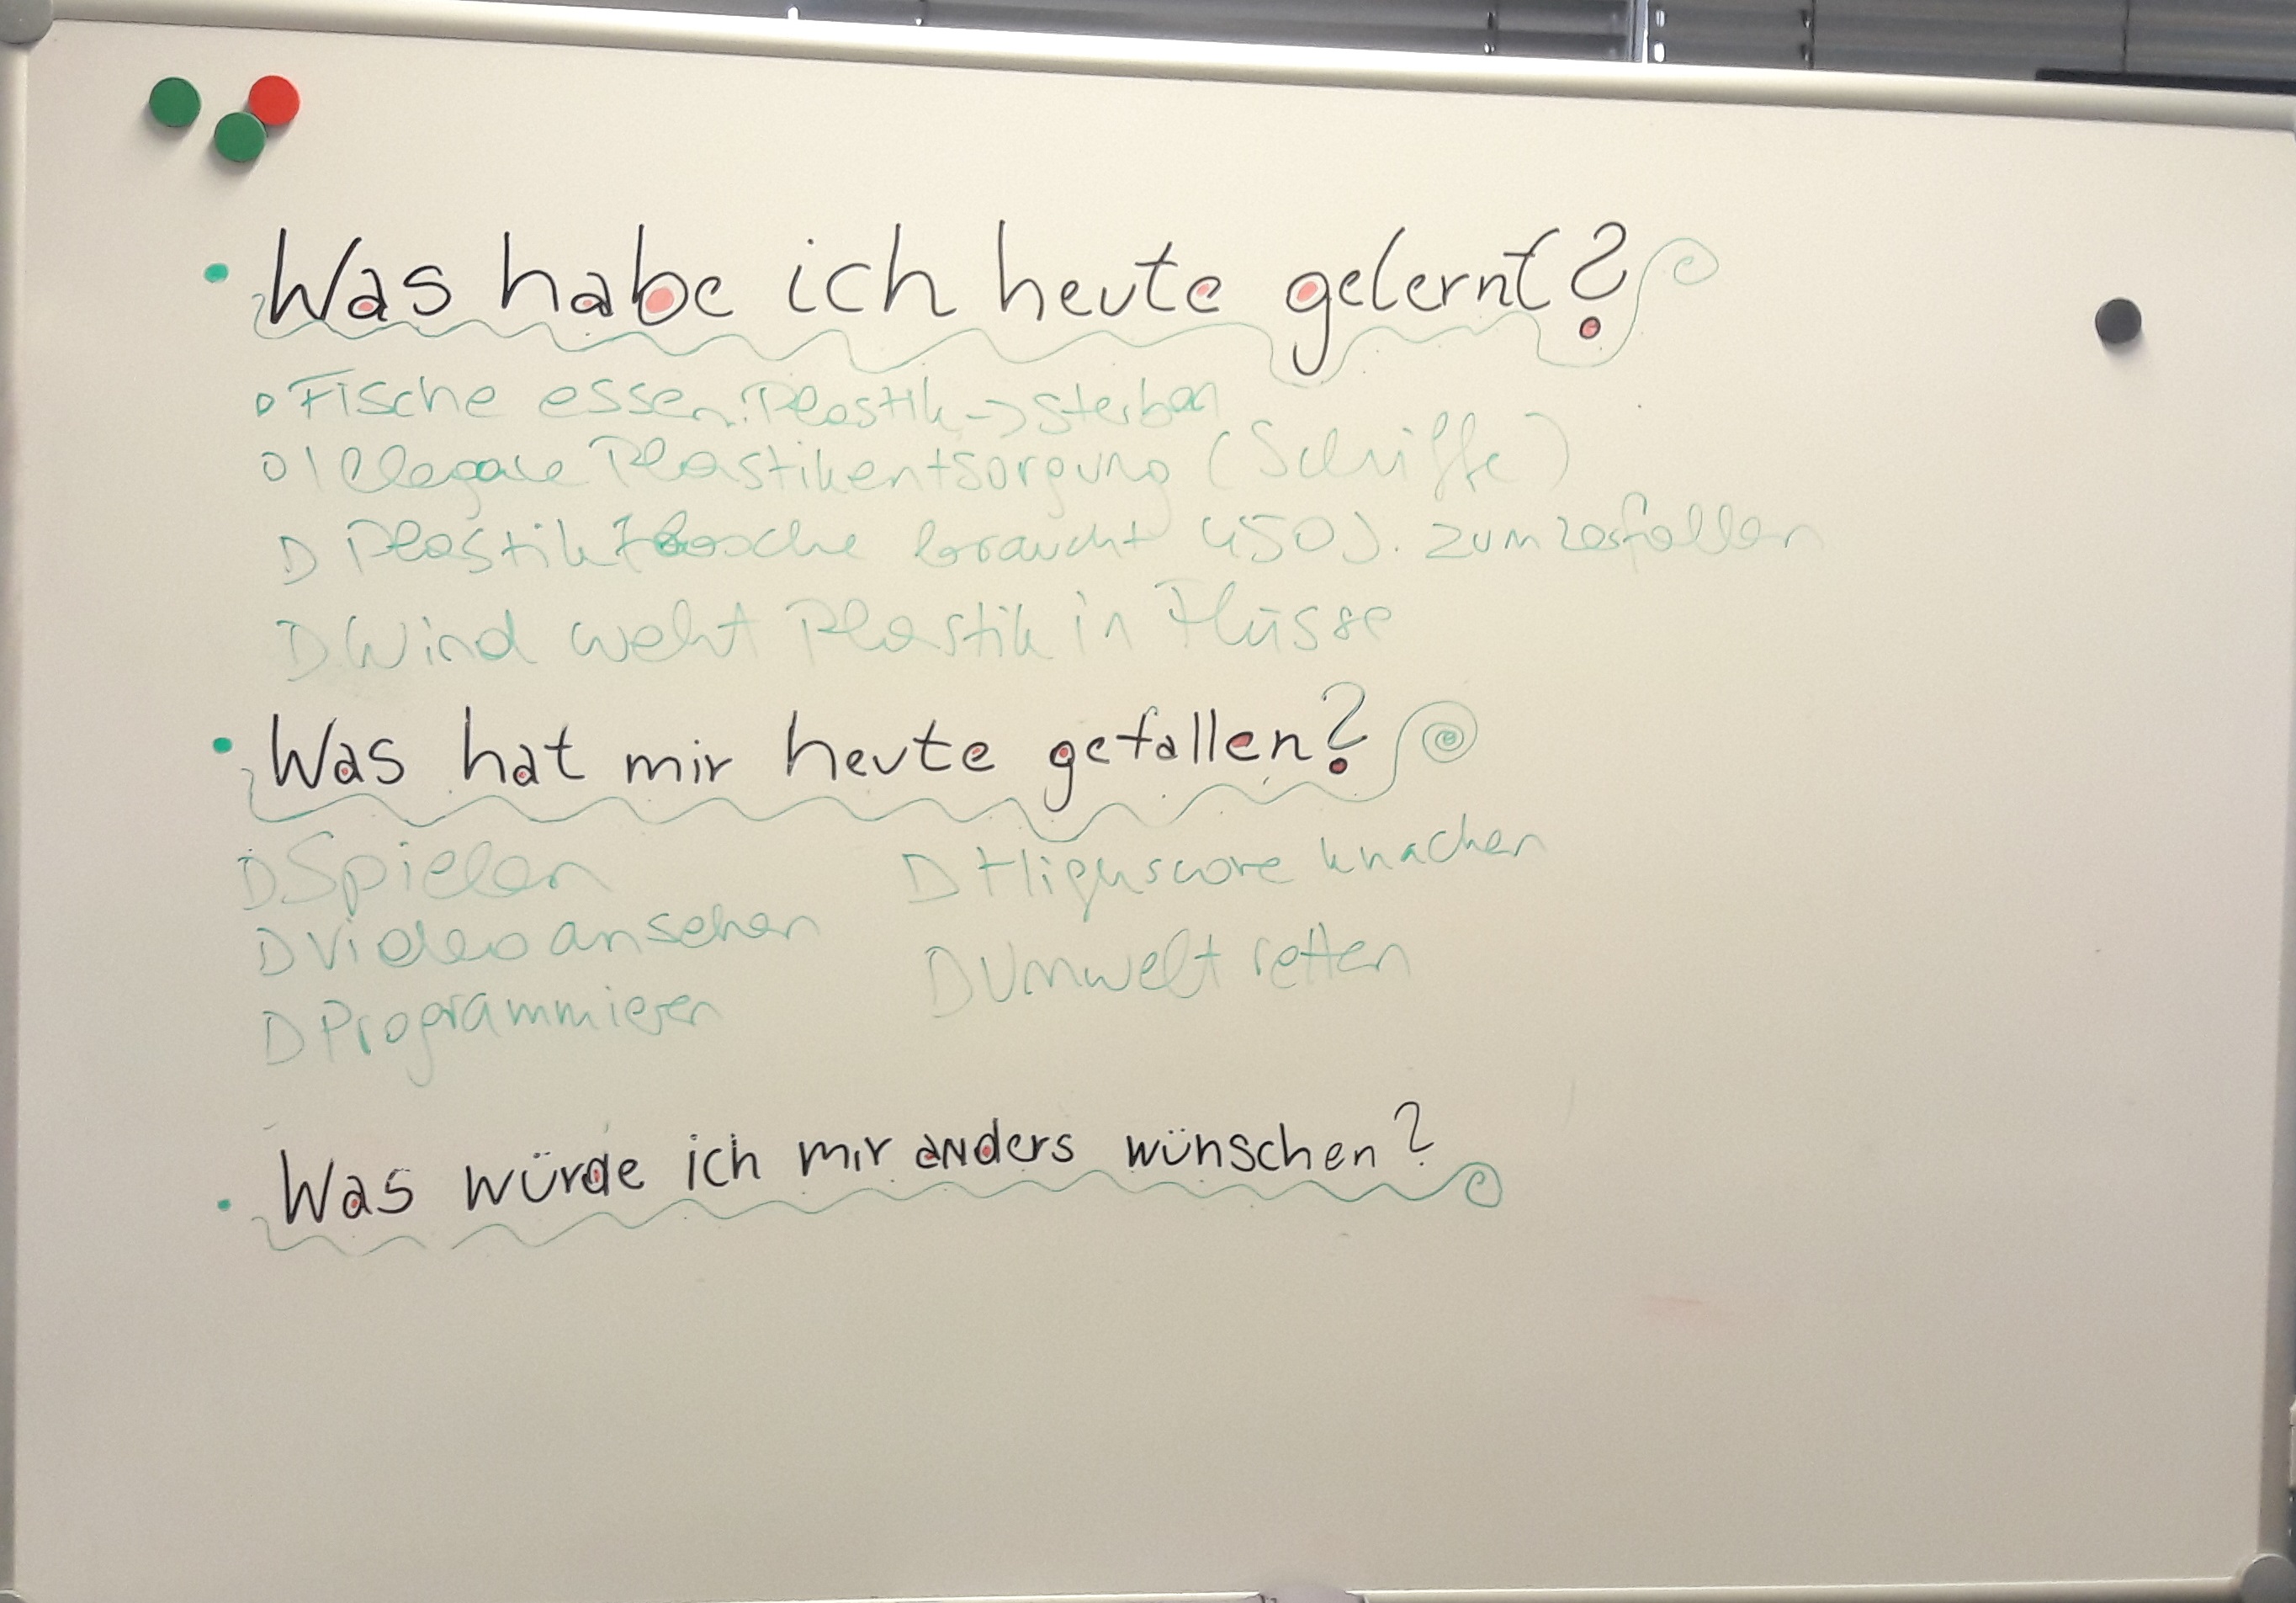 • Was habe ich heute gelernt?
Fische essen Plastik -> sterben
Illegale Plastikentsorgung (Schiffe)
Plastikflasche braucht 450 J. zum zerfallen
Wind weht Plastik in Flüsse
• Was hat mir heute gefallen?
Spielen
Video ansehen
Programmieren
Highscore knacken
Umwelt retten
• Was würde ich mir anders wünschen?